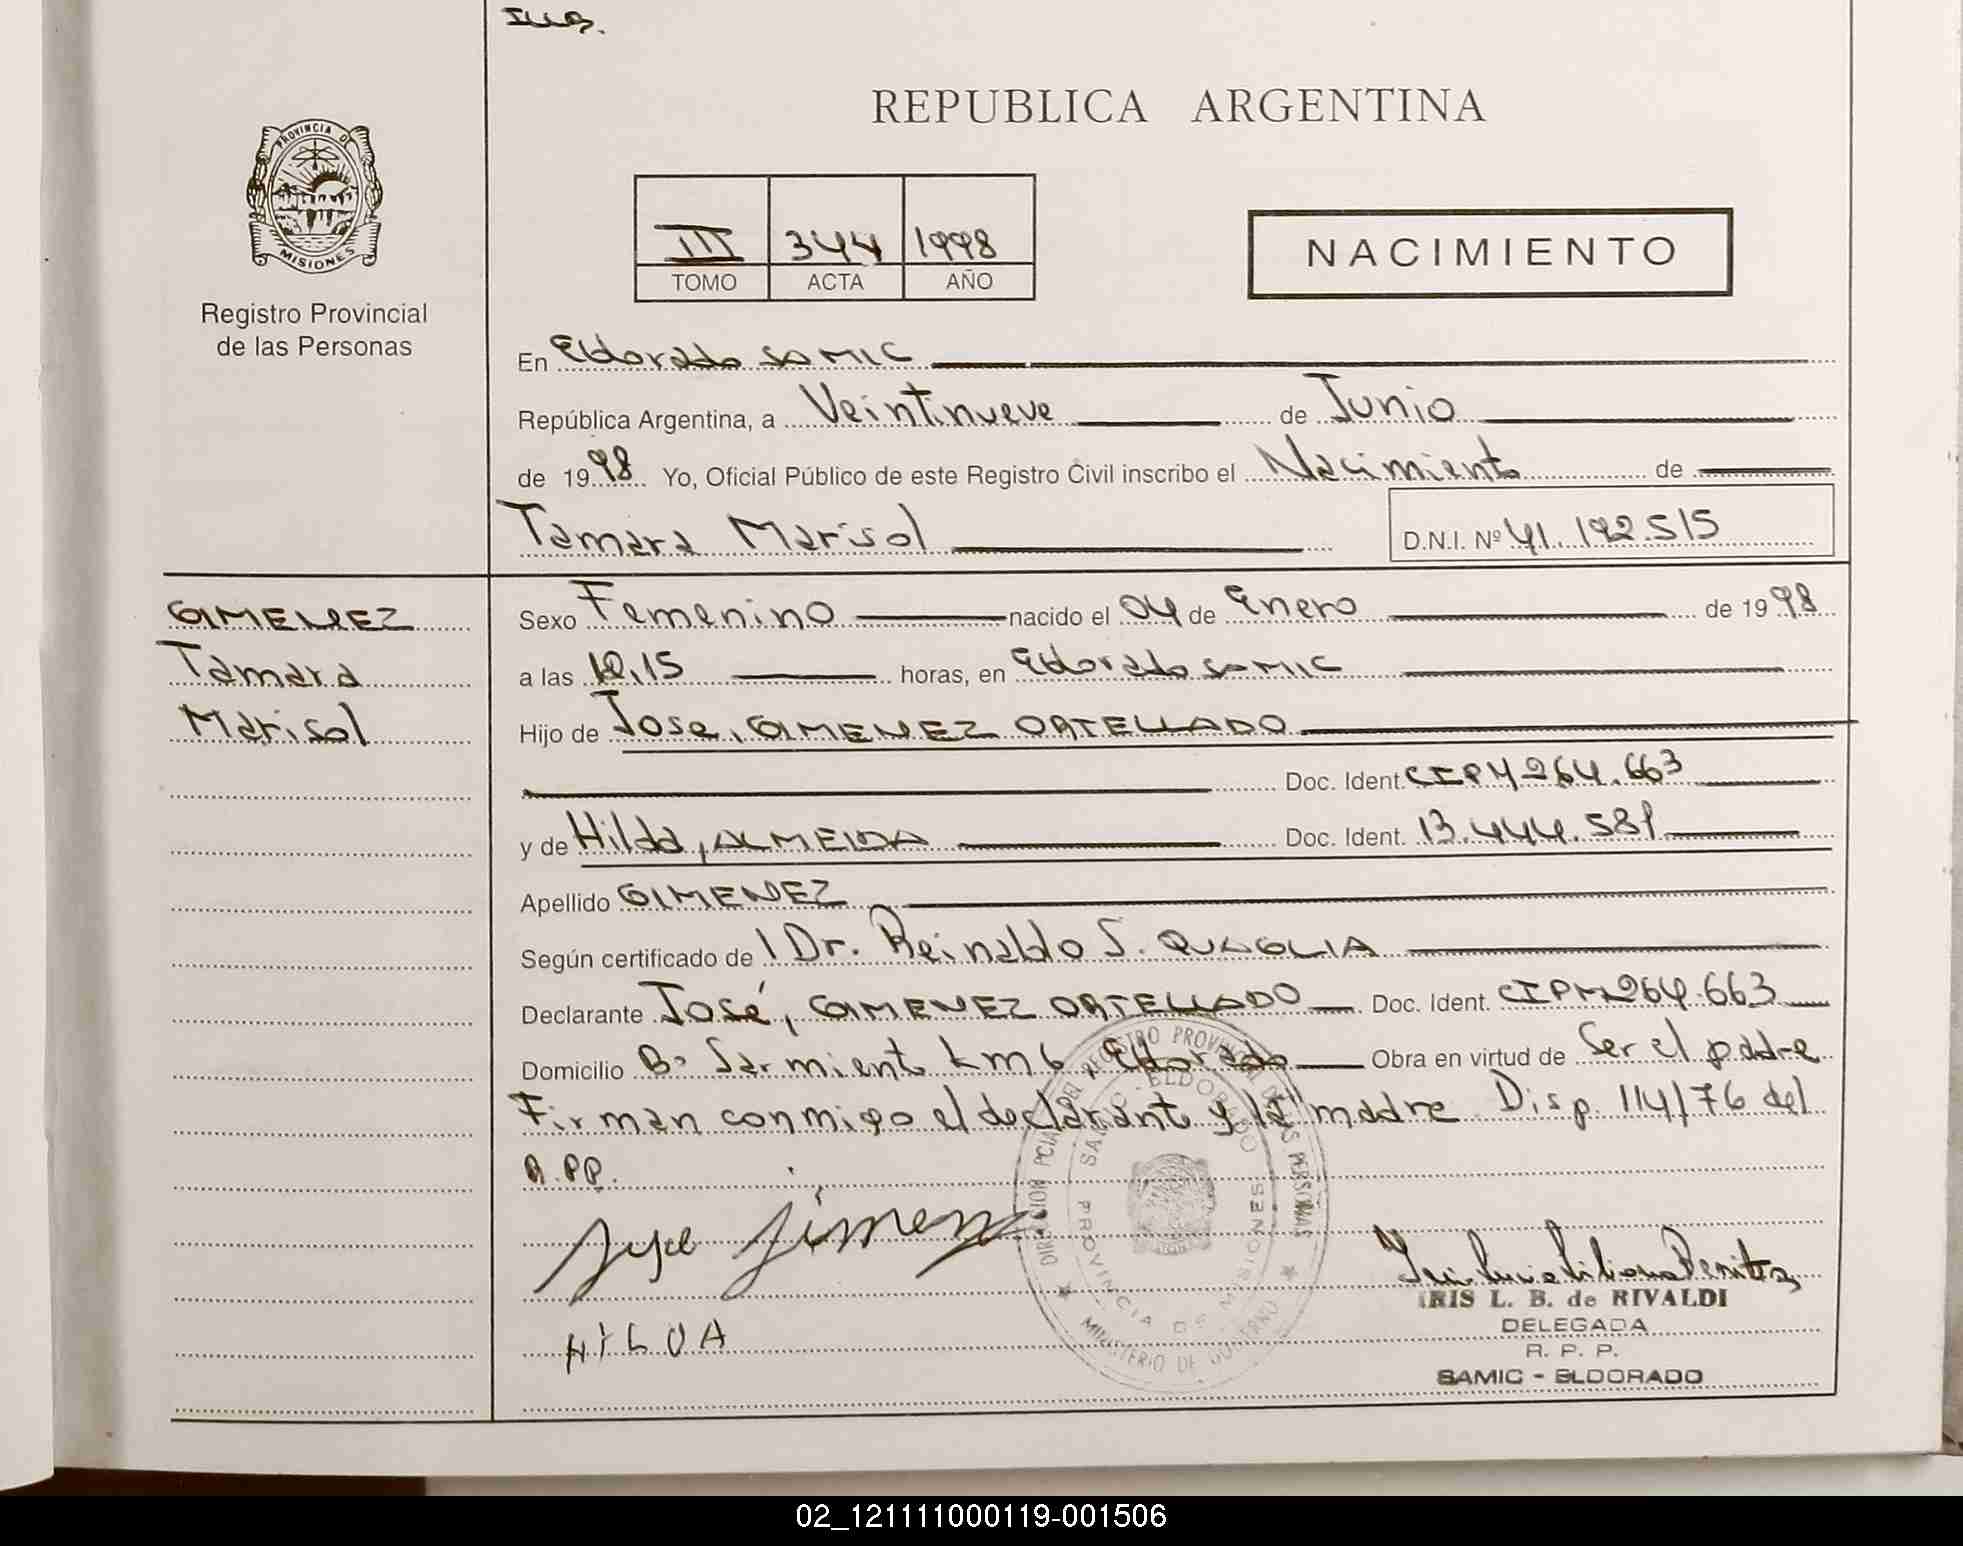 REPUBLICA ARGENTINA
PROVINCIA DE
MISIONES
Registro Provincial
de las Personas
III 344 1998
TOMO ACTA AÑO
NACIMIENTO
En Eldorado SAMIC
República Argentina, a Veintinueve de Junio
de 1998 Yo, Oficial Público de este Registro Civil inscribo el Nacimiento de
Tamara Marisol D.N.I. Nº 41.192.515
GIMENEZ
Tamara
Marisol
Sexo Femenino nacido el 04 de Enero de 1998
a las 10,15 horas, en Eldorado SAMIC
Hijo de Jose, GIMENEZ ORTELLADO
Doc. Ident. CIPM 264.663
y de Hilda, ALMEIDA Doc. Ident. 13.444.581
Apellido GIMENEZ
Según certificado de l Dr. Reinaldo S. QUAGLIA
Declarante José, GIMENEZ ORTELLADO Doc. Ident. CIPM 264.663
Domicilio Bº Sarmiento km 6, Eldorado Obra en virtud de Ser el padre
Firman conmigo el declarante y la madre Disp. 114/76 del
R.PP.
DIRECCION PCIAL. DEL REGISTRO PROVINCIAL DE LAS PERSONAS
SAMIC - ELDORADO
PROVINCIA DE MISIONES
MINISTERIO DE GOBIERNO
Jose Jimenez
HILDA
IRIS L. B. de RIVALDI
DELEGADA
R. P. P.
SAMIC - ELDORADO
02_121111000119-001506